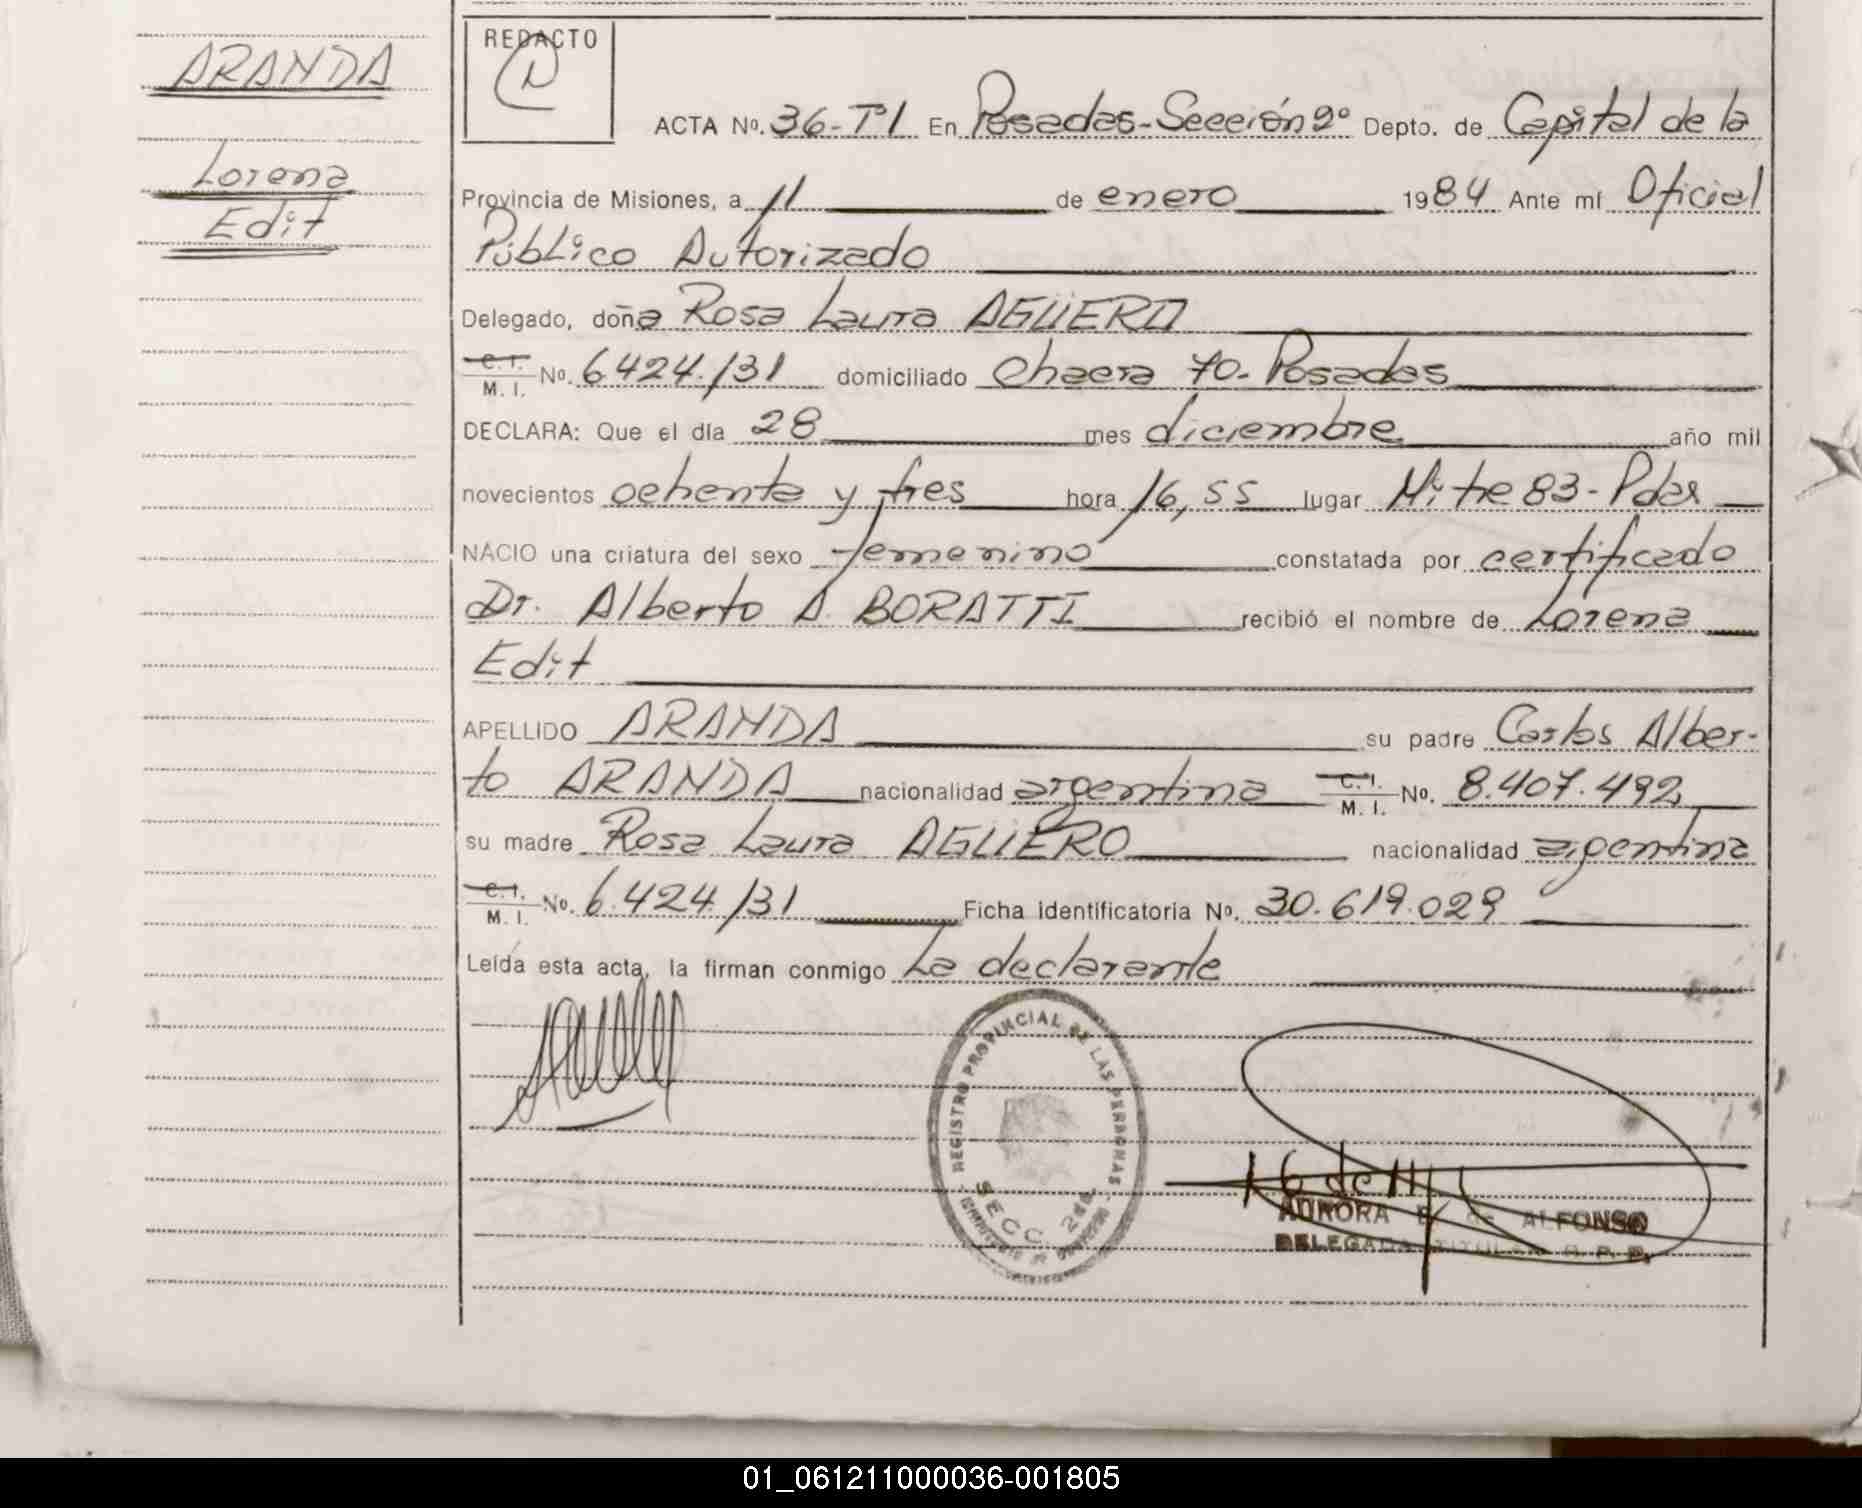 ARANDA
Lorena
Edit
REDACTO
ACTA Nº. 36-Tº1 En Posadas-Sección 2º Depto. de Capital de la
Provincia de Misiones, a 11 de enero 1984 Ante mí Oficial
Público Autorizado
Delegado, doña Rosa Laura AGÜERO
C. I. M. I. Nº. 6424.131 domiciliado Chacra 70-Posadas
DECLARA: Que el día 28 mes diciembre año mil
novecientos ochenta y tres hora 16,55 lugar Mitre 83-Pdas
NACIO una criatura del sexo femenino constatada por certificado
Dr. Alberto A. BORATTI recibió el nombre de Lorena
Edit
APELLIDO ARANDA su padre Carlos Alber-
to ARANDA nacionalidad argentina C. I. M. I. Nº. 8.407.492,
su madre Rosa Laura AGÜERO nacionalidad argentina
C. I. M. I. Nº. 6.424.131 Ficha identificatoria Nº. 30.619.029
Leída esta acta, la firman conmigo La declarante
REGISTRO PROVINCIAL DE LAS PERSONAS
SECC. 2da.
AURORA de ALFONSO
DELEGADA TITULAR R. P. P.
01_061211000036-001805